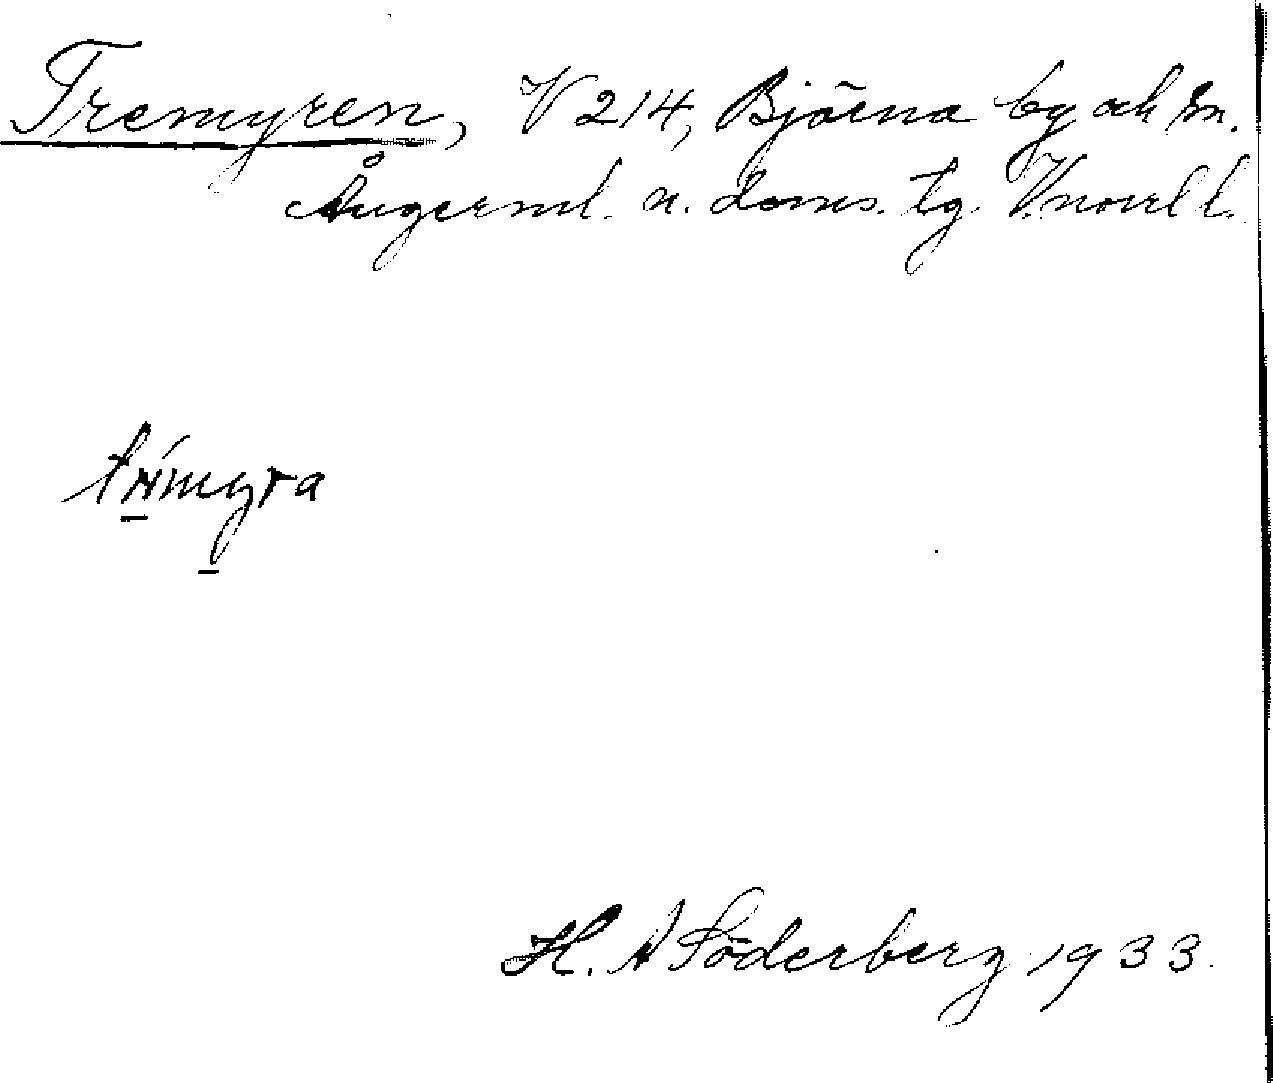 Tremyren, V 214, Björna by och sn.
Ångerml. n. doms. tg. V.norrl l.
trimyra
H. A Söderberg 1933.